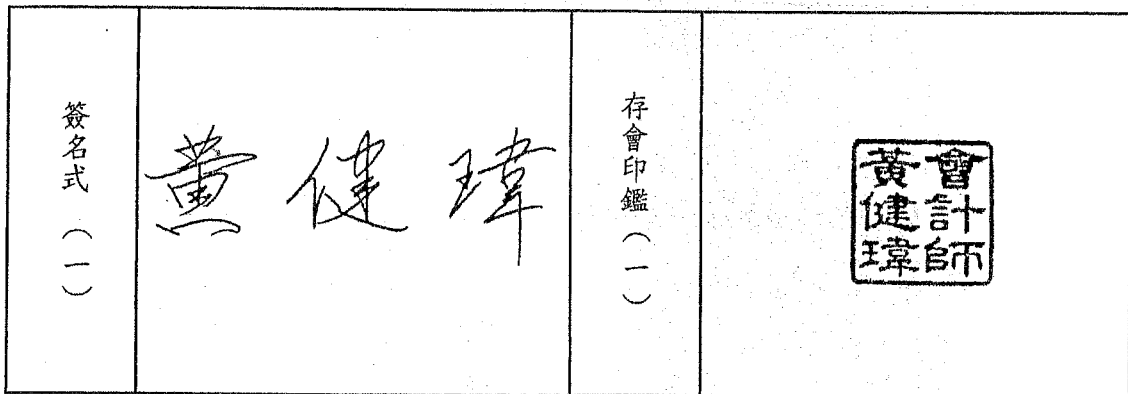 簽名式（一）
黃健瑋
存會印鑑（一）
會計師
黃健瑋